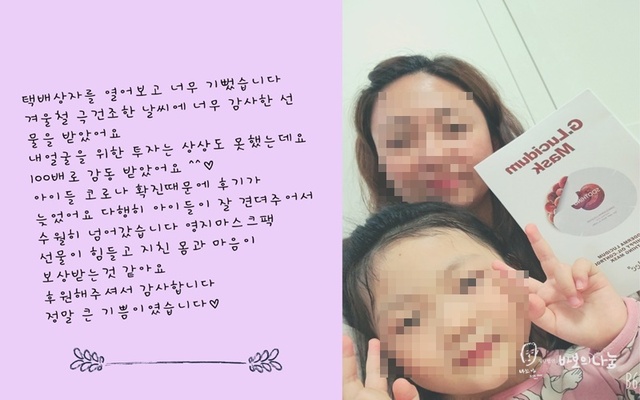 택배상자를 열어보고 너무 기뻤습니다
겨울철 극건조한 날씨에 너무 감사한 선
물을 받았어요
내얼굴을 위한 투자는 상상도 못했는데요
100배로 감동 받았어요 ^^♡
아이들 코로나 확진때문에 후기가
늦었어요 다행히 아이들이 잘 견뎌주어서
수월히 넘어갔습니다 영지마스크팩
선물이 힘들고 지친 몸과 마음이
보상받는것 같아요
후원해주셔서 감사합니다
정말 큰 기쁨이였습니다♡
G.Lucidum
Mask
바보의나눔